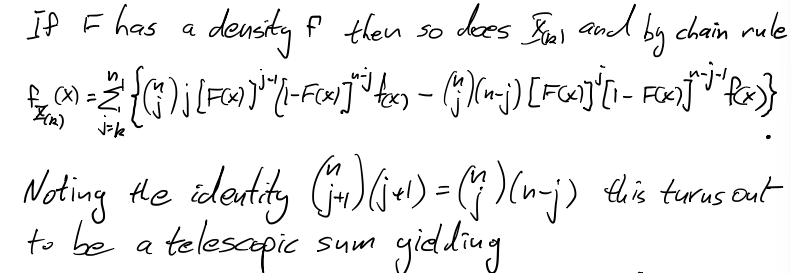 If F has a density f then so does X_(k) and by chain rule
f_{X_(k)}(x) = Σ_{j=k}^{n} { (n j) j [F(x)]^{j-1} [1-F(x)]^{n-j} f(x) - (n j)(n-j) [F(x)]^{j} [1-F(x)]^{n-j-1} f(x) } .
Noting the identity (n j+1)(j+1) = (n j)(n-j) this turns out
to be a telescopic sum yielding